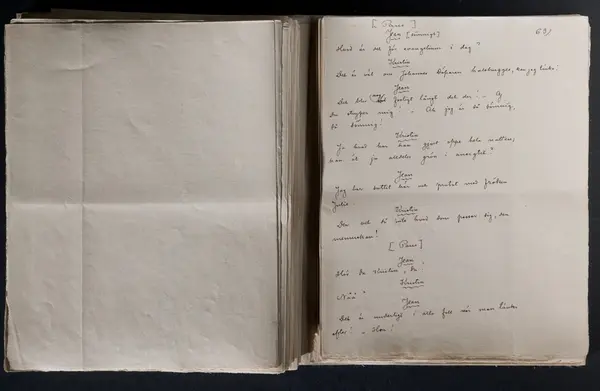 [Paus]
60)
Jean [sömnigt]
Hvad är det för evangelium i dag?
Kristin
Det är väl om Johannes Döparens halshuggning, kan jag tänka!
Jean
Det blir visst långt det der! – Aj
Du stryper mig! – Ack jag är så sömnig,
så sömnig!
Kristin
Ja hvad har han gjort oppe hela natten;
han är ju alldeles grön i ansigtet?
Jean
Jag har suttit här och pratat med fröken
Julie.
Kristin
Den vet då inte hvad som passar sig, den
menniskan!
[Paus]
Jean
Hör Du Kristin, Du.
Kristin
Nåå?
Jean
Det är underligt i alla fall när man tänker
efter! – Hon!